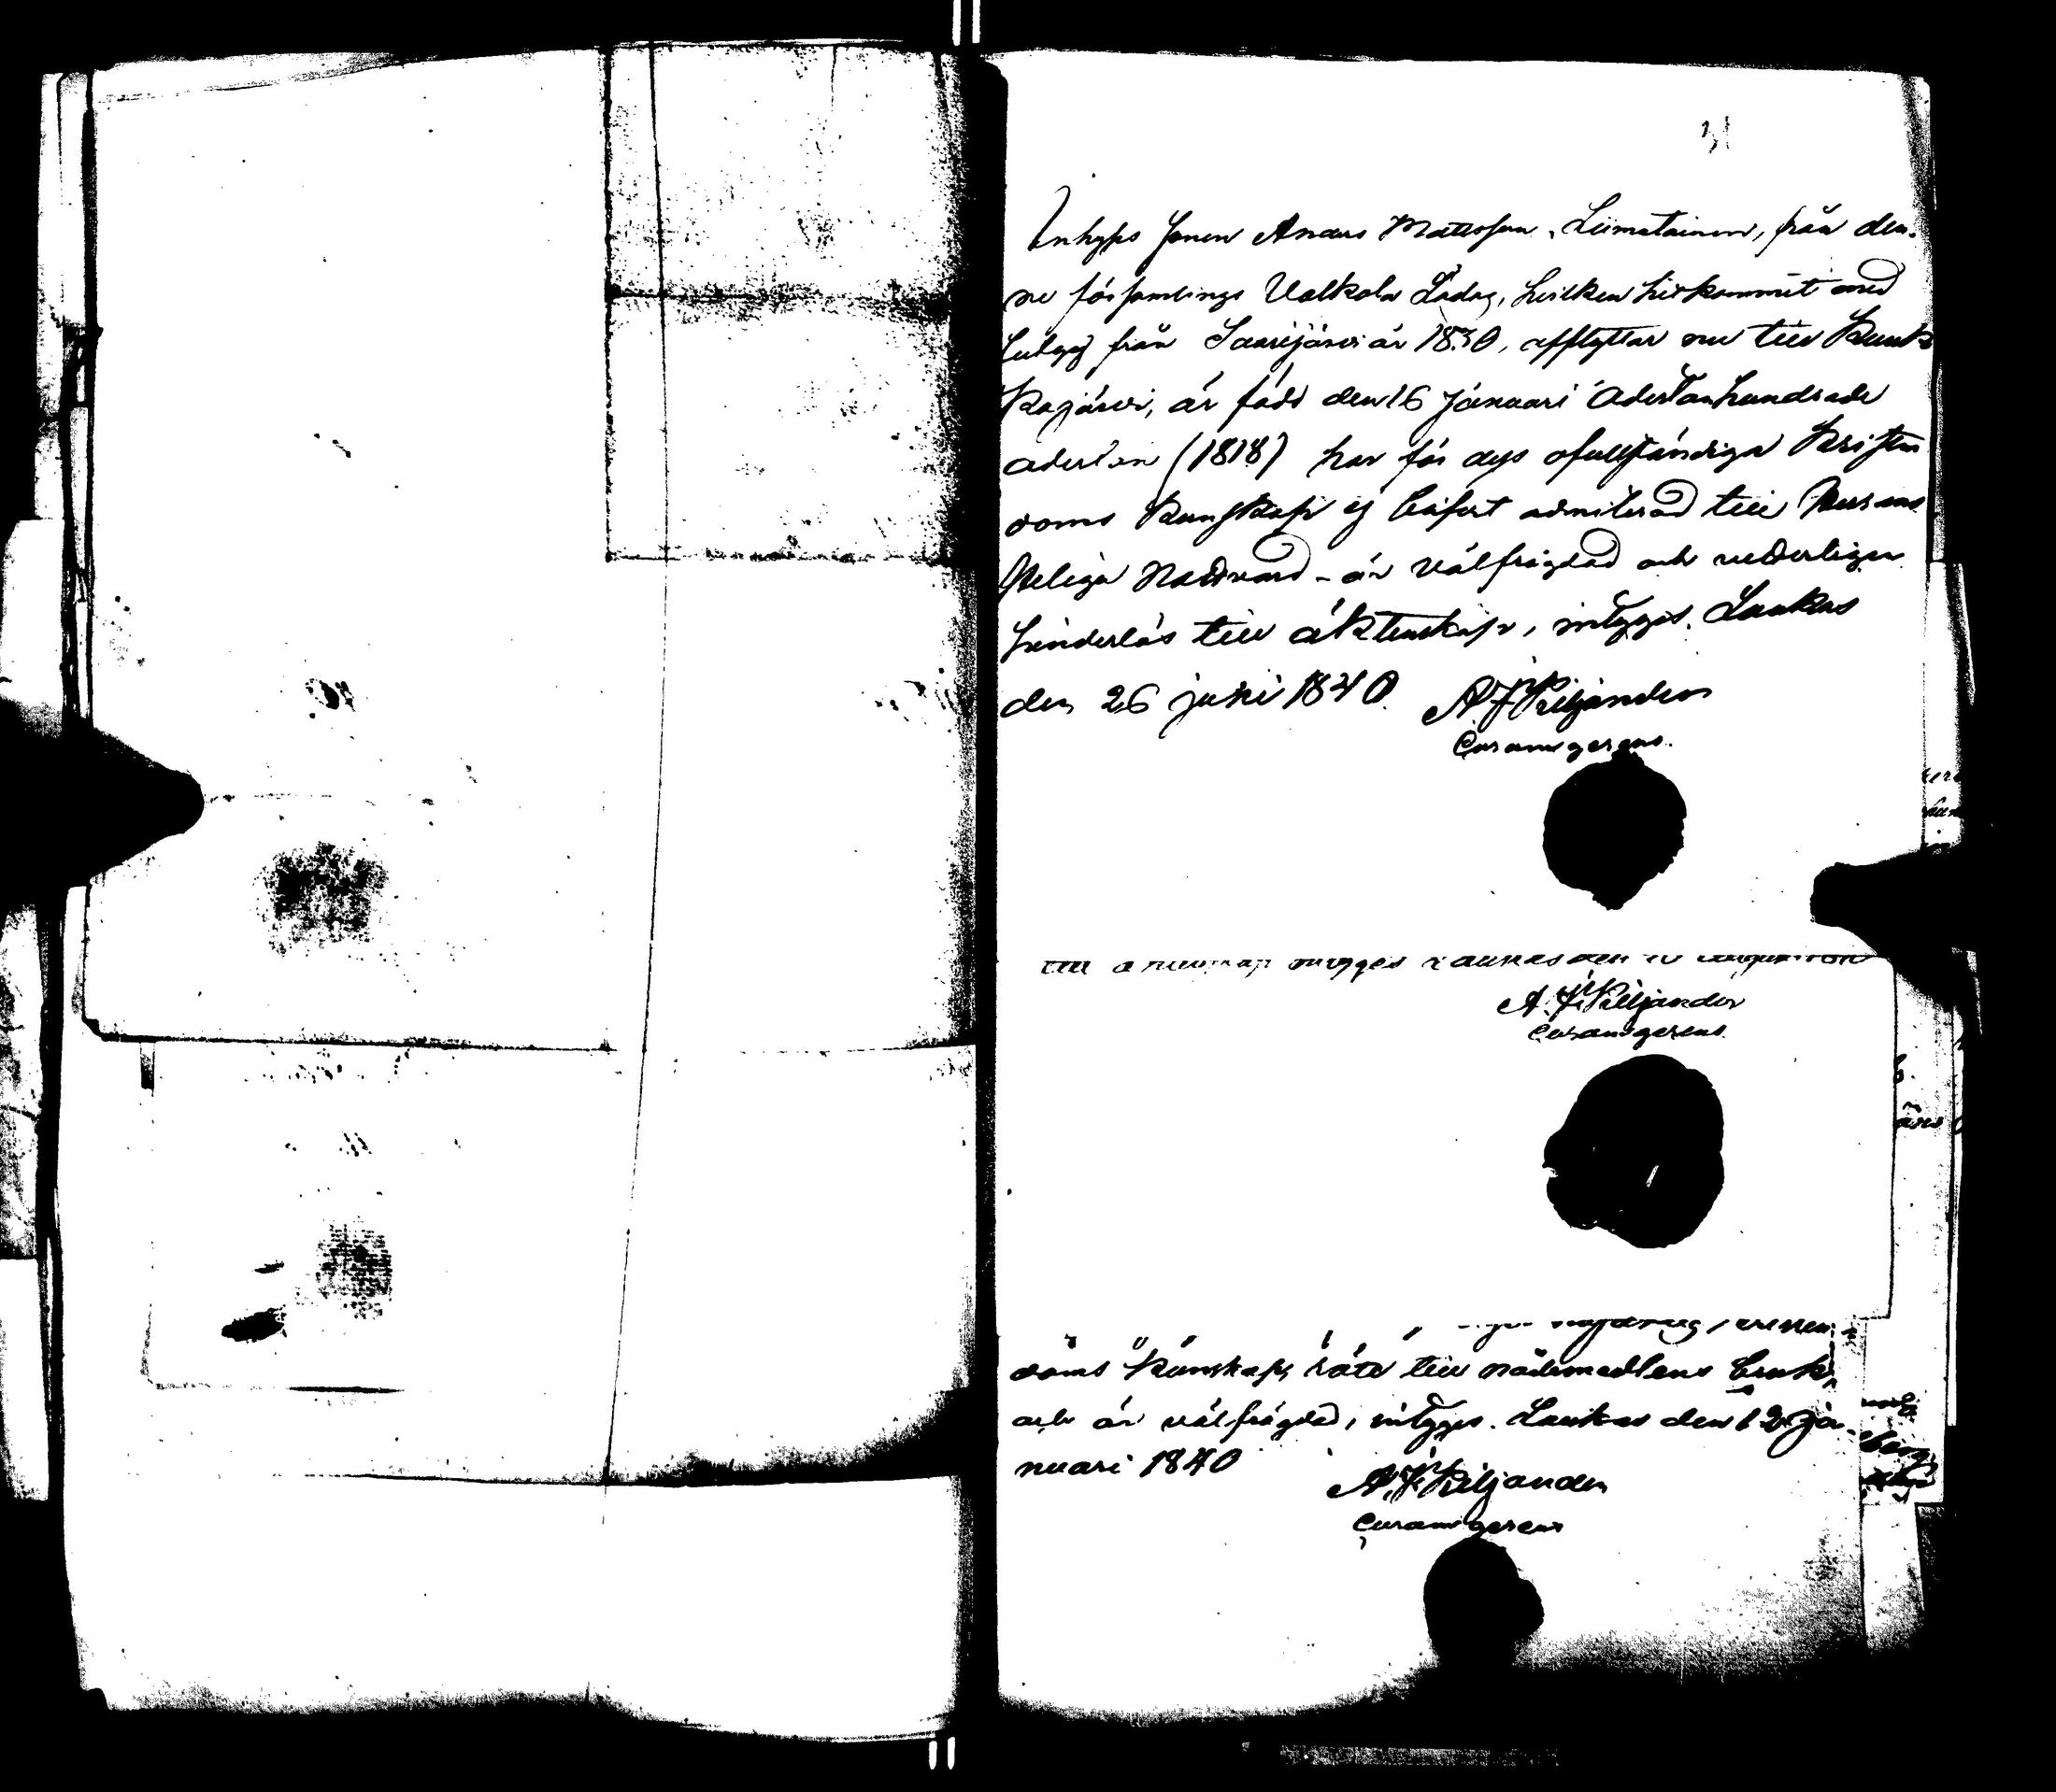 31
Inhyses Sonen Anders Mattsson Liimatainen, från den-
ne församlings Valkola Lådag, hvilken hitkommit med
betyg från Saarijärvi år 1830, afflyttar nu till Kuik
kajärvi, är född den 16 Januari Adertonhundrade
aderton (1818) har för dess ofullständiga Kristen
doms kunskap ej blifvit admitterad till Herrans
Heliga Nattvard - är välfrägdad och vederligen
hinderlös till äktenskap, intygas. Laukas
den 26 juni 1840. A. J. Kiljander
Curam gerens.
till äktenskap intygas Laukas den
A. J. Kiljander
Curam gerens.
doms kunskap, rätt till nådemedlens bruk,
och är välfrägdad, intygas. Laukas den 12 Ja-
nuari 1840
A. J. Kiljander
Curam gerens